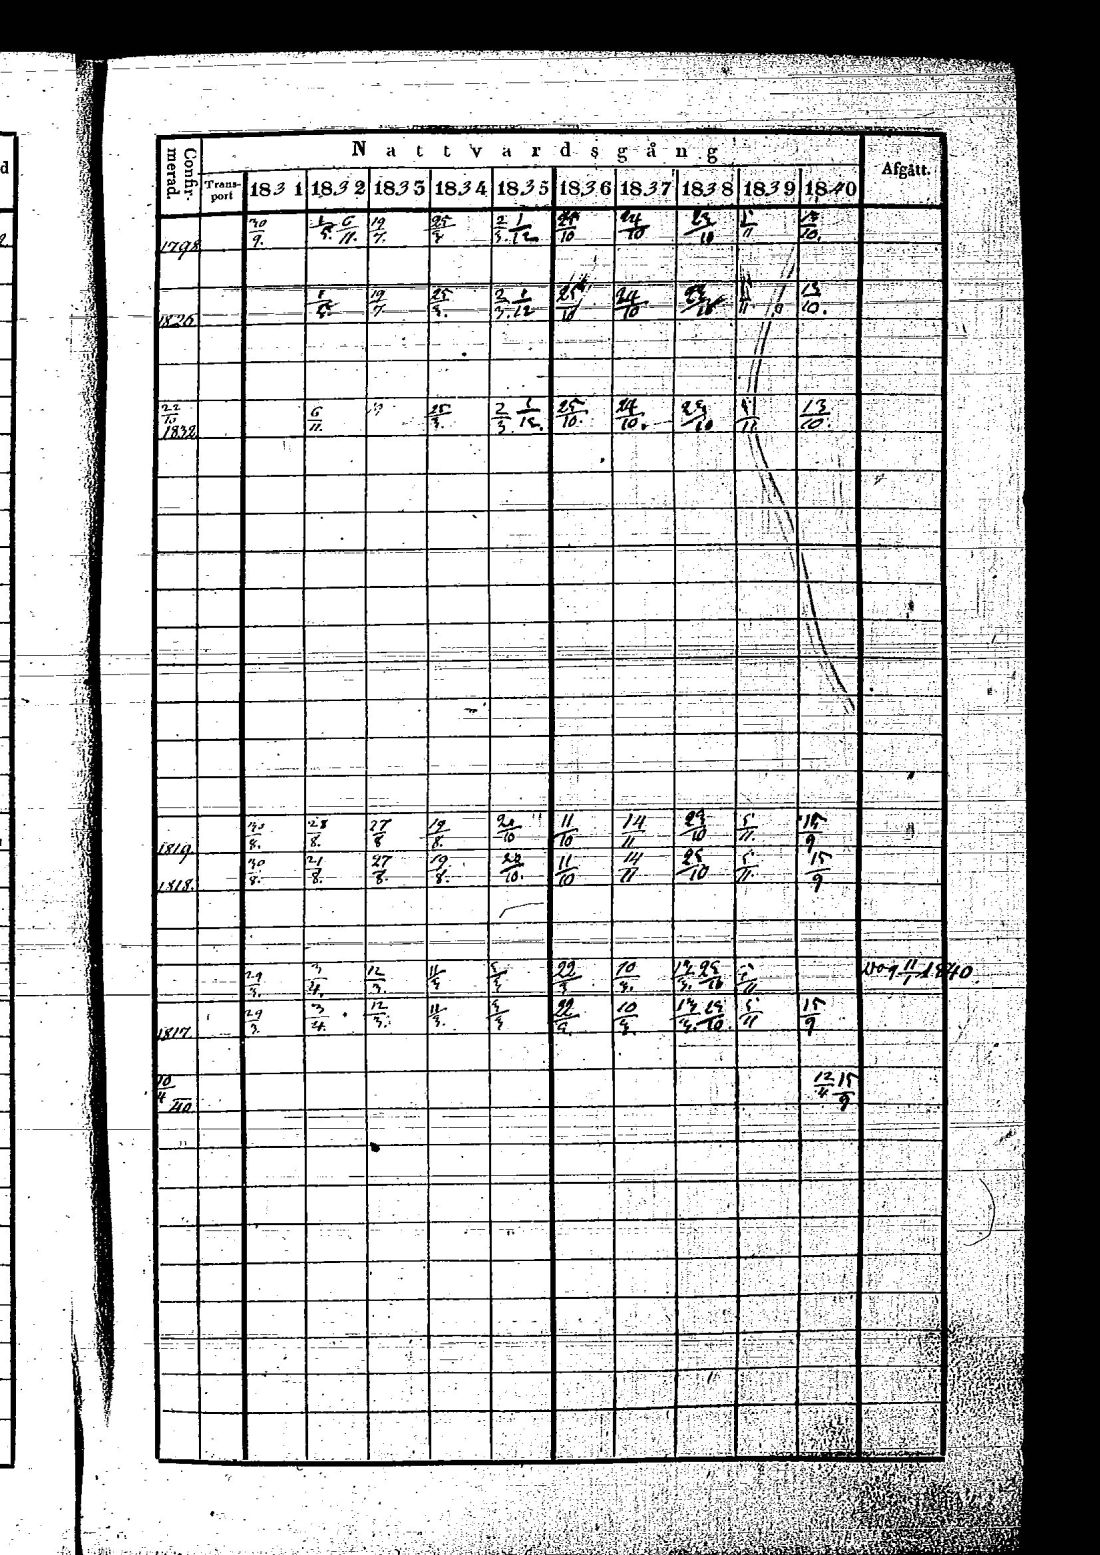 Nattvardsgång
Confirmerad. Transport 1831 1832 1833 1834 1835 1836 1837 1838 1839 1840 Afgått.
1798 30/9. 6/11. 19/7. 25/3 2/3. 1/12 25/10 24/10 23/10 5/11 13/10.
1826 19/7. 25/3. 2/3. 1/12 25/10 24/10 23/10 5/11 13/10.
22/10 1832 6/11. 25/3. 2/3. 1/12. 25/10. 24/10. 23/10 5/11 13/10.
1819 30/8. 28/8. 27/8 19/8. 20/10 11/10 14/11 23/10 5/11. 15/9
1818. 30/8. 21/8. 27/8. 19/8. 20/10. 11/10 14/11 25/10 5/11. 15/9
29/3. 3/4. 12/3. 11/3 22/3 10/3 5/11 11/1 1840.
1817. 29/3. 3/4. 12/3. 11/3. 22/3. 10/3. 5/11 15/9
10/4 40 12/4 15/9